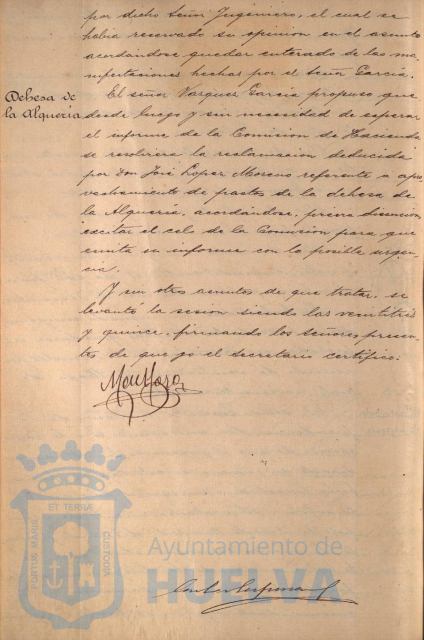 por dicho Señor Ingeniero, el cual se
había reservado su opinion en el asunto
acordándose quedar enterado de las ma-
nifestaciones hechas por el Señor García.
Dehesa de
la Alquería
El señor Vazquez García propuso que
desde luego y sin necesidad de esperar
el informe de la Comision de Hacienda
se resolviera la reclamacion deducida
por Don José Lopez Moreno referente a apro
vechamiento de pastos de la dehesa de
la Alquería, acordándose, previa discusion
excitar el celo de la Comision para que
emita su informe con la posible urgen-
cia.
Y sin otros asuntos de que tratar, se
levantó la sesion siendo las veintitres
y quince, firmando los Señores presen-
tes de que yo el Secretario certifico:
PORTUS MARIS
ET TERRÆ
CUSTODIA
Ayuntamiento de
HUELVA